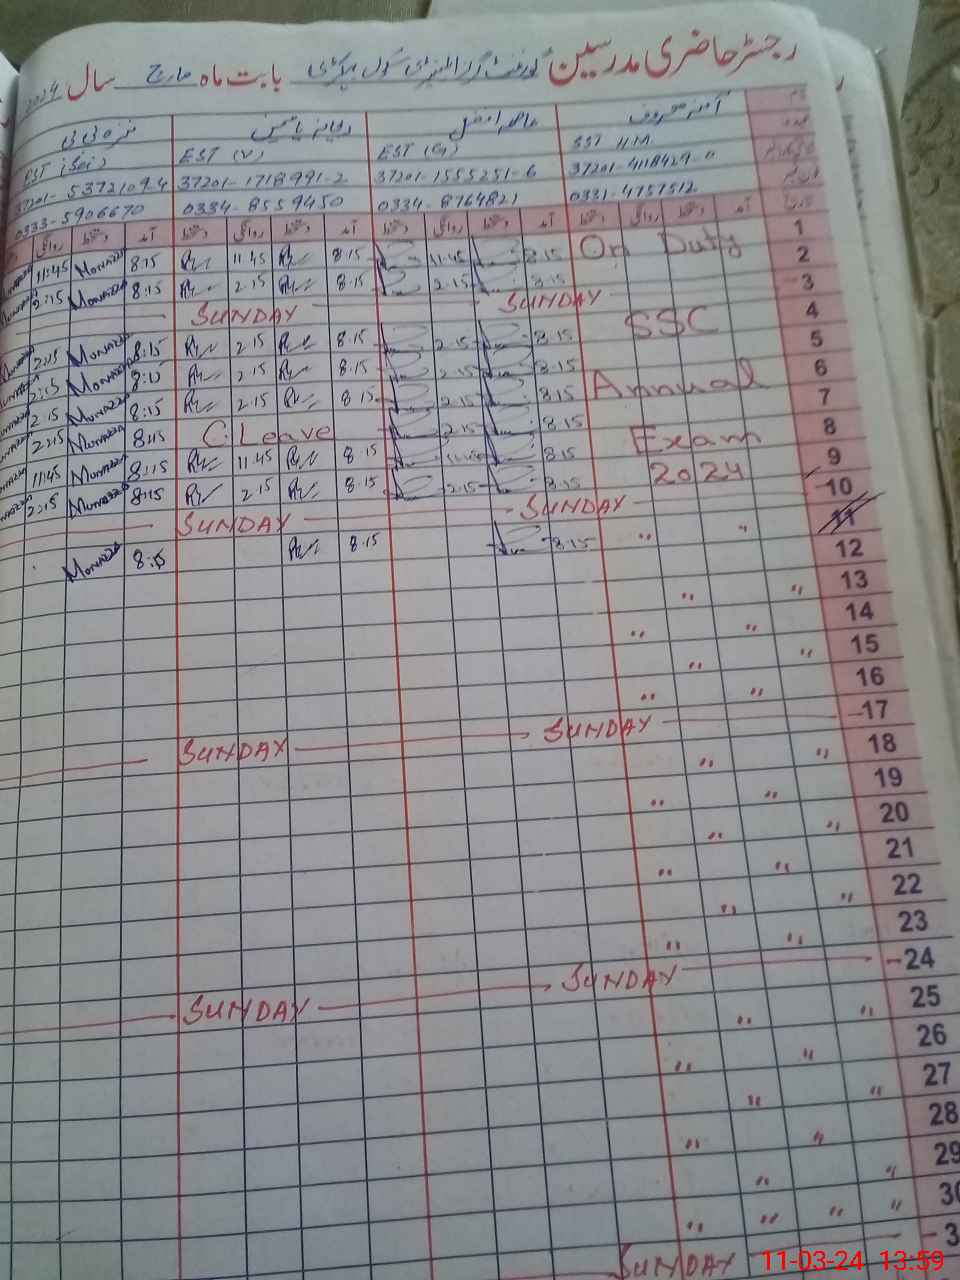 رجسٹر حاضری مدرسین گورنمنٹ گرلز ایلیمنٹری سکول بابت ماہ مارچ سال 2024
نام آمنہ معروف عاصمہ افضل ریحانہ یاسمین منزہ بی بی
عہدہ SST H.M EST (G) EST (V) EST (Sci)
37201-4118429-0 37201-1555251-6 37201-1718991-2 37201-5372109-4
0331-4757512 0334-8764821 0334-8559450 0333-5906670
تاریخ آمد دستخط روانگی دستخط آمد دستخط روانگی دستخط آمد دستخط روانگی دستخط آمد دستخط روانگی
1 On Duty 8.15 11.45 8.15 11.45 8.15 Monaza 11:45
2 8.15 2.15 8.15 2.15 8:15 Monaza 2:15
3 SUNDAY SUNDAY
4 SSC 8.15 2.15 8.15 2.15 8:15 Monaza 2:15
5 8.15 2.15 8.15 2.15 8:15 Monaza 2:15
6 Annual 8.15 2.15 8.15 2.15 8:15 Monaza 2:15
7 8.15 2.15 C. Leave 8:15 Monaza 2:15
8 Exam 8.15 11.45 8.15 11.45 8:15 Monaza 11:45
9 2024 8.15 2.15 8.15 2.15 8:15 Monaza 2:15
10 SUNDAY SUNDAY
11 " " 8.15 8.15 8:15 Monaza
12
13 " "
14 " "
15 " "
16 " "
17 SUNDAY SUNDAY
18 " "
19 " "
20 " "
21 " "
22 " "
23 " "
24 SUNDAY SUNDAY
25 " "
26 " "
27 " "
28 " "
29 " "
30 " " " "
3 SUNDAY
11-03-24 13:59